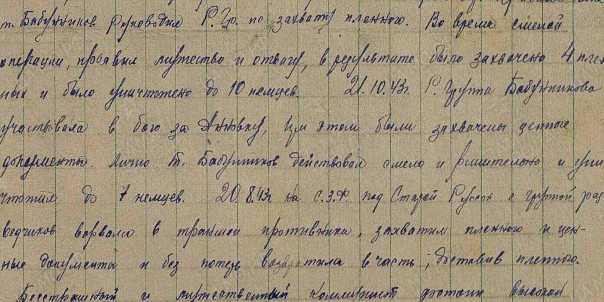 т. Бабушников руководил Р. Гр. по захвату пленного. Во время смелой
операции, проявил мужество и отвагу, в результате было захвачено 4 плен
ных и было уничтожено до 10 немцев. 21.10.43г. Р. Группа Бабушникова
участвовала в бою за Анновку, при этом были захвачены ценные
документы. Лично т. Бабушников действовал смело и решительно и уни
чтожил до 7 немцев. 20.8.43г на С.З.Ф. под Старой Руссой с группой раз
ведчиков ворвался в траншеи противника, захватил пленного и цен-
ные документы и без потерь возвратился в часть, доставив пленного.
Бесстрашный и мужественный коммунист достоин высокой